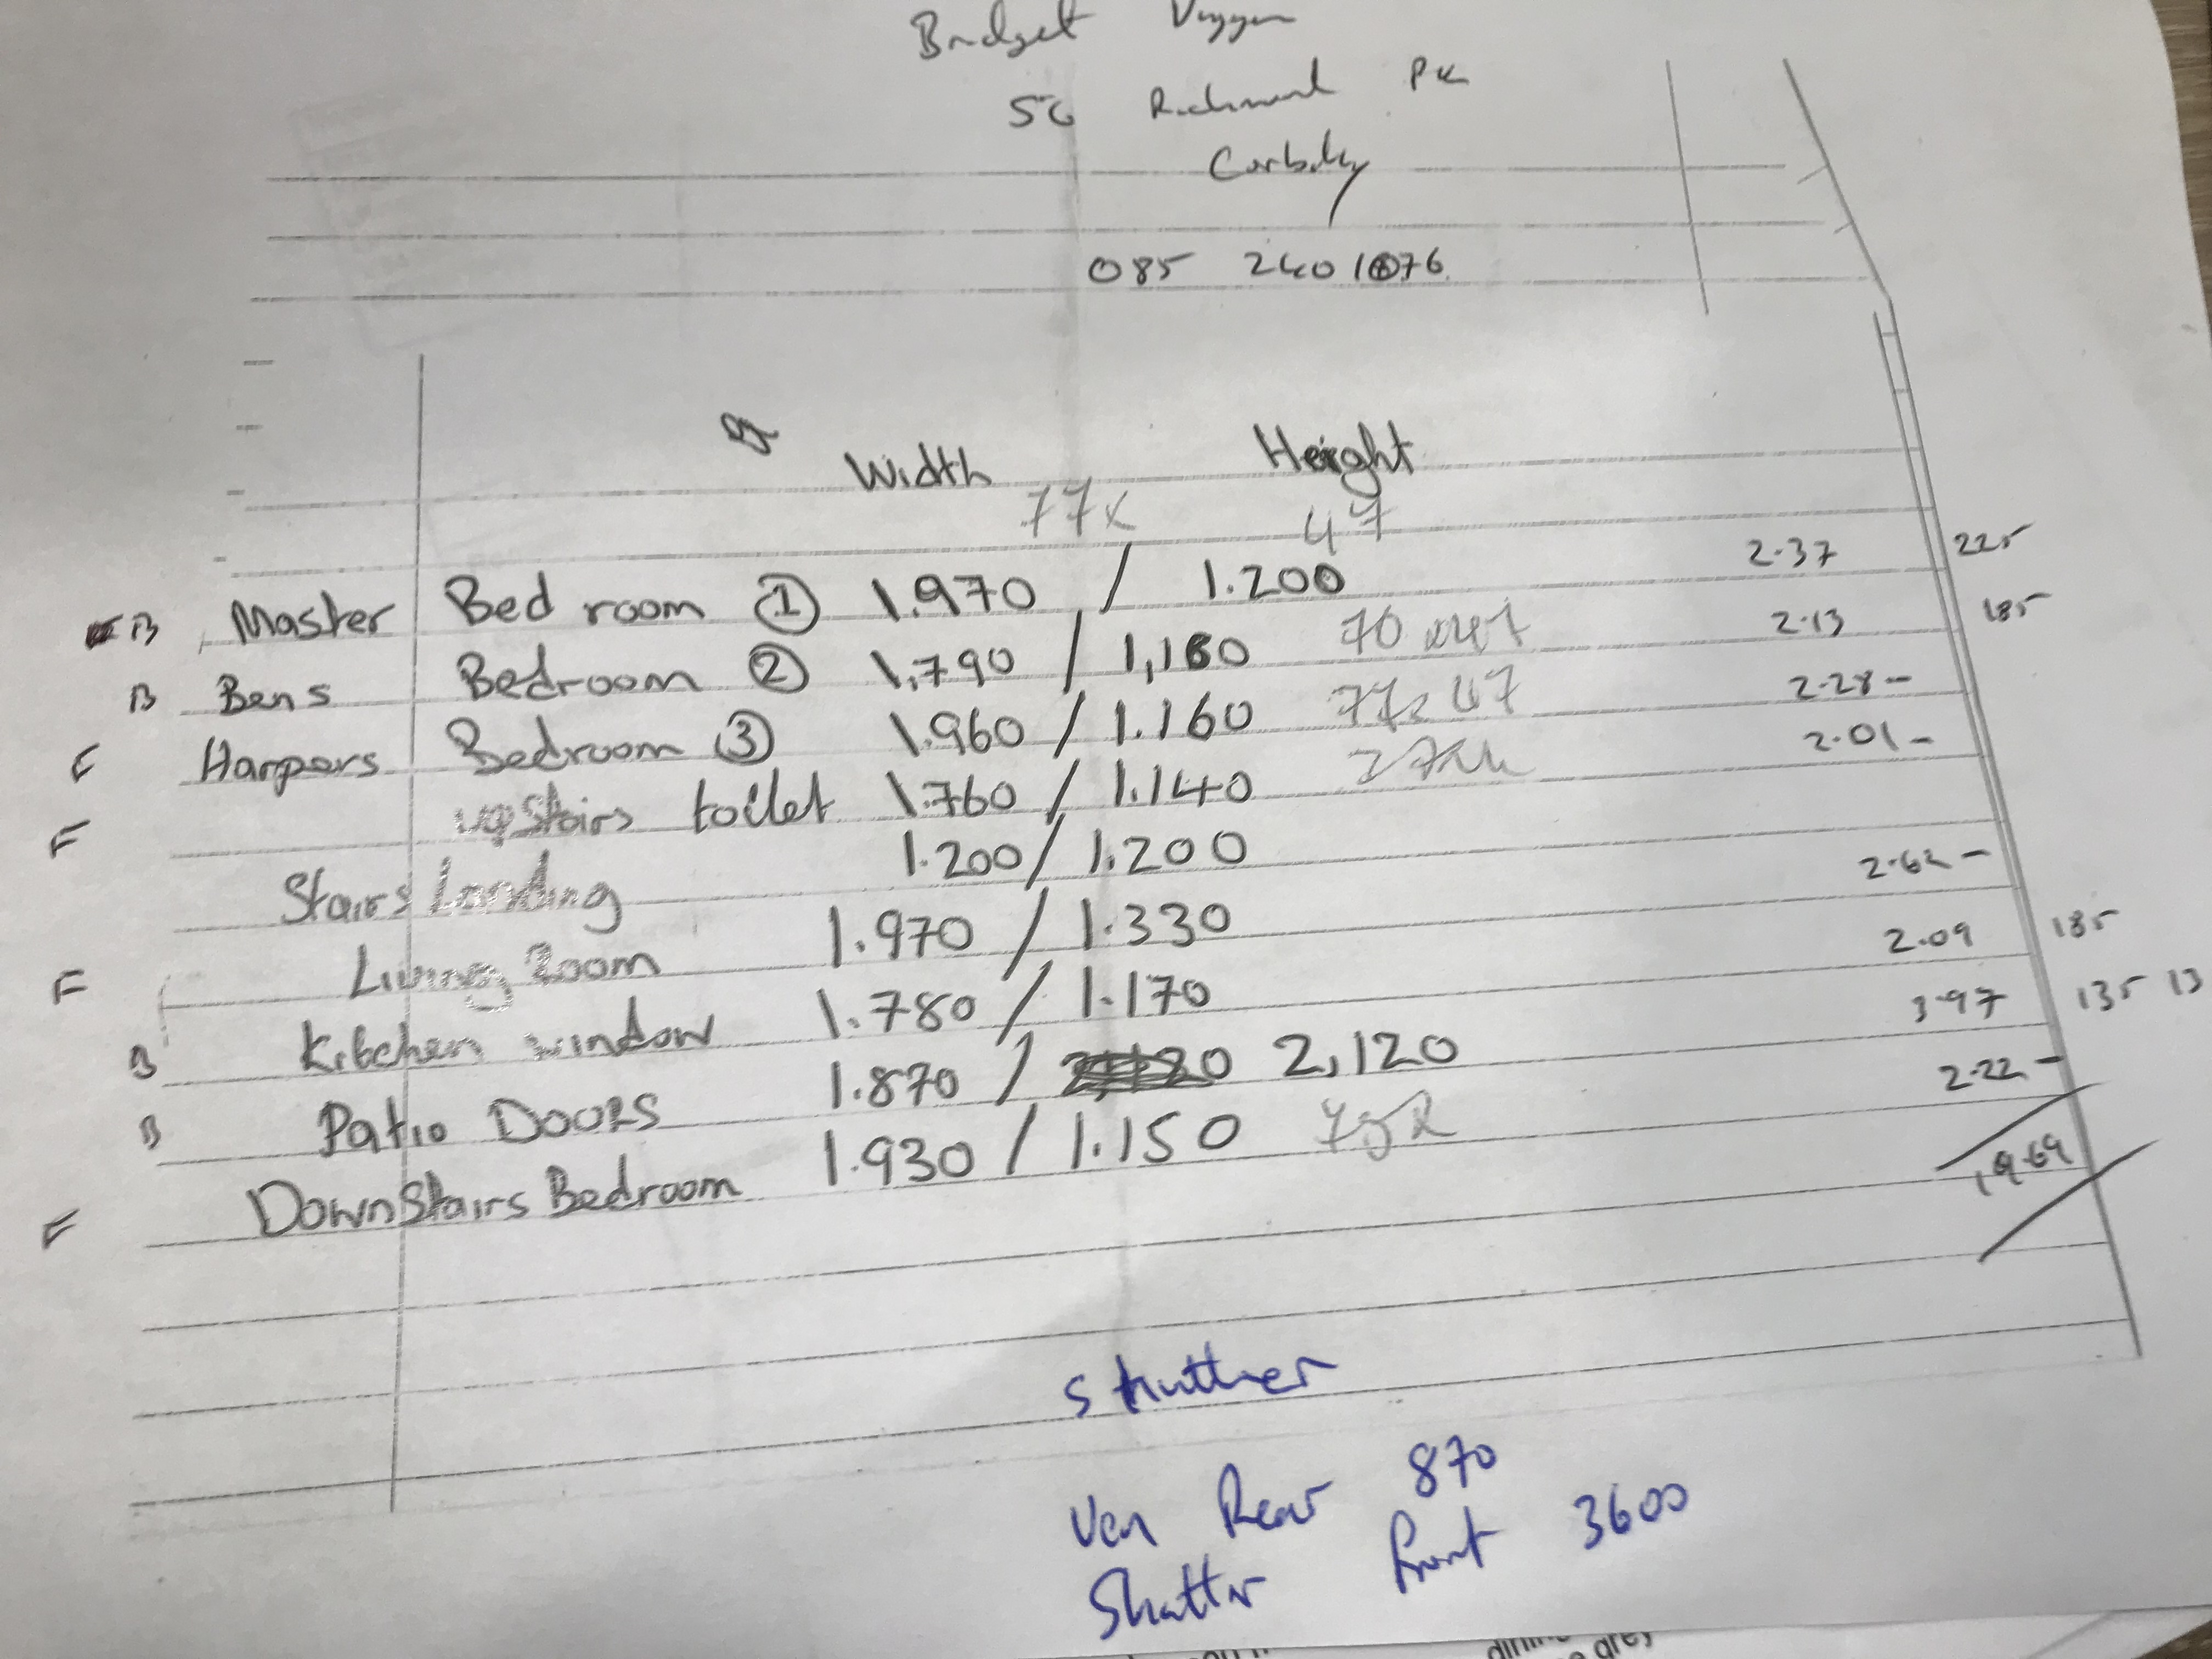 Bridget
56 Richmond PK
Corbally
085 2401076
Width Height
77x 47
B Master Bedroom 1 1.970 / 1.200 2.37 225
B Bens Bedroom 2 1,790 / 1,180 70 x47 2.13 185
F Harpers Bedroom 3 1.960 / 1.160 77x47 2.28 -
F upstairs toilet 1.760 / 1.140 2.01 -
Stairs Landing 1.200 / 1.200
F Living Room 1.970 / 1.330 2.62 -
B Kitchen window 1.780 / 1.170 2.09 185
B Patio DOORS 1.870 / 2,120 3.97 135 13
F DownStairs Bedroom 1.930 / 1.150 2.22 -
Shutter
Ven Rear 870
Shutter Front 3600